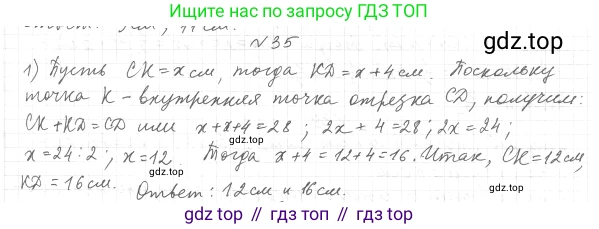 Ищите нас по запросу ГДЗ ТОП
№35
gdz.top
1) Пусть СК = x см, тогда KD = x + 4 см. Поскольку
точка К - внутренняя точка отрезка CD, получим:
СК + KD = CD или x + x + 4 = 28 ; 2x + 4 = 28 ; 2x = 24 ;
gdz.top
x = 24 : 2 ; x = 12. Тогда x + 4 = 12 + 4 = 16. Итак, СК = 12 см,
KD = 16 см. Ответ: 12 см и 16 см.
gdz.top
gdz.top // гдз.топ // gdz.top